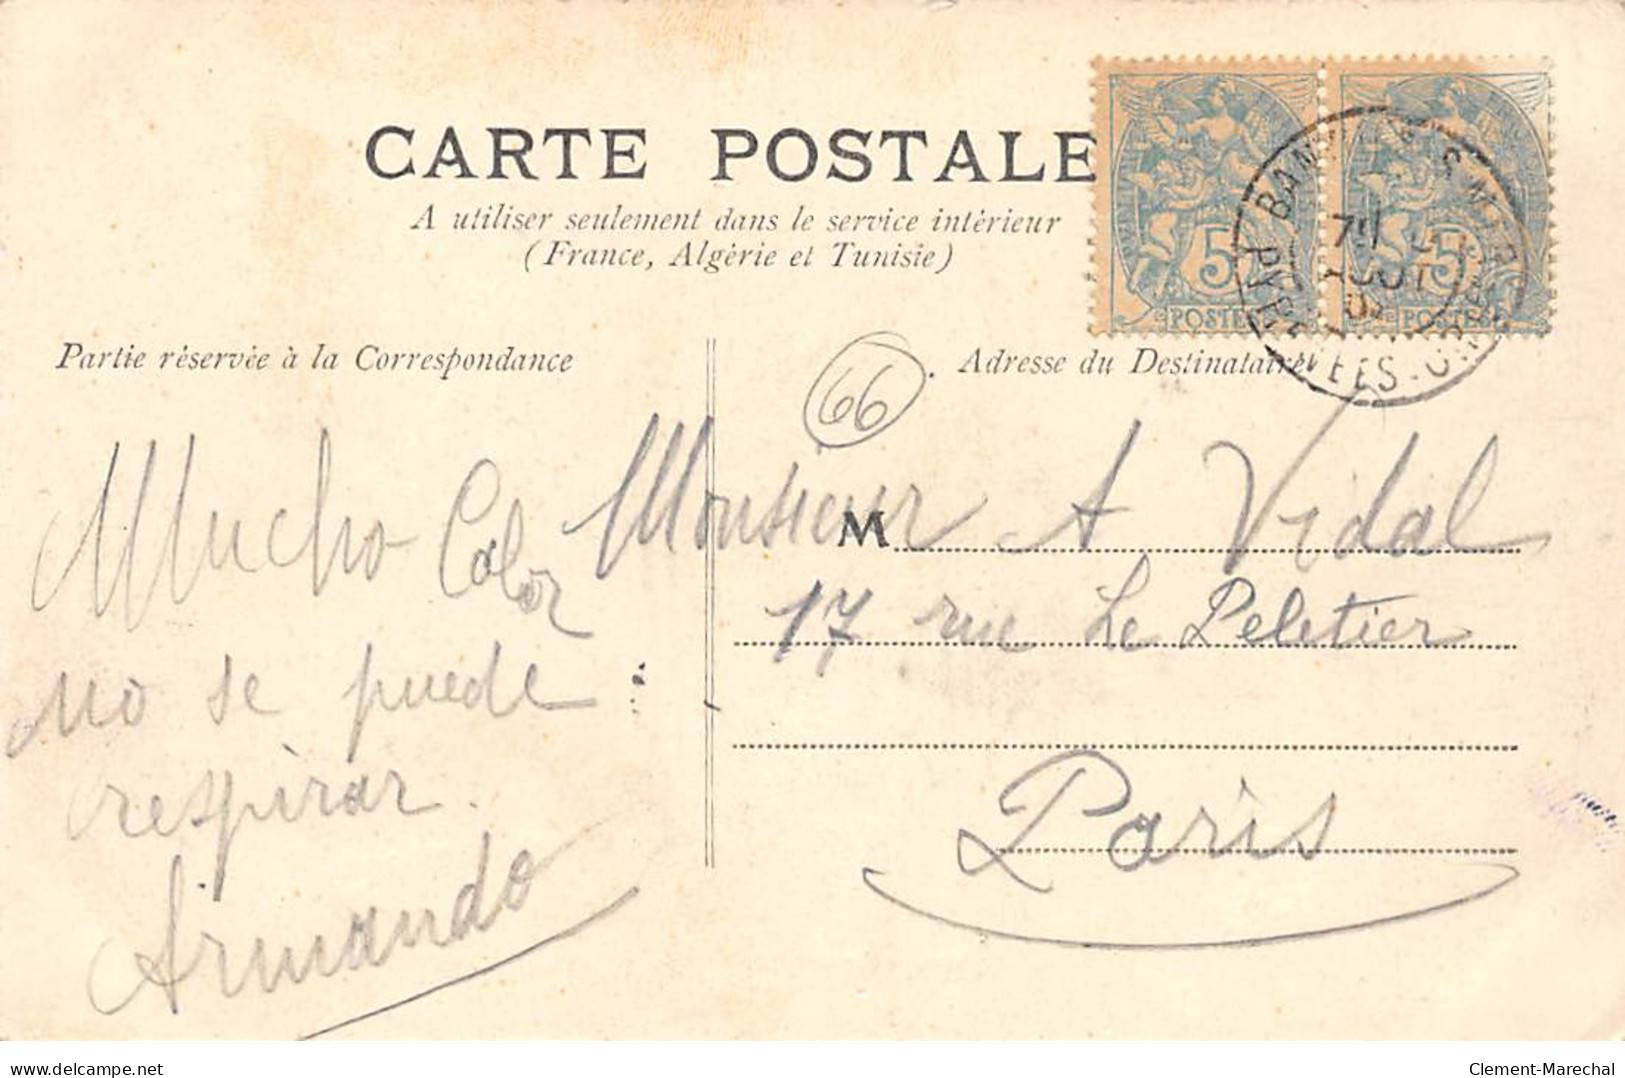 CARTE POSTALE
A utiliser seulement dans le service intérieur
(France, Algérie et Tunisie)
Partie réservée à la Correspondance
Adresse du Destinataire
66
5
POSTES
5
POSTES
Mucho Calor
no se puede
respirar.
Armando
M
Monsieur A Vidal
17 rue Le Peletier
Paris
delcampe.net
Clement-Marechal